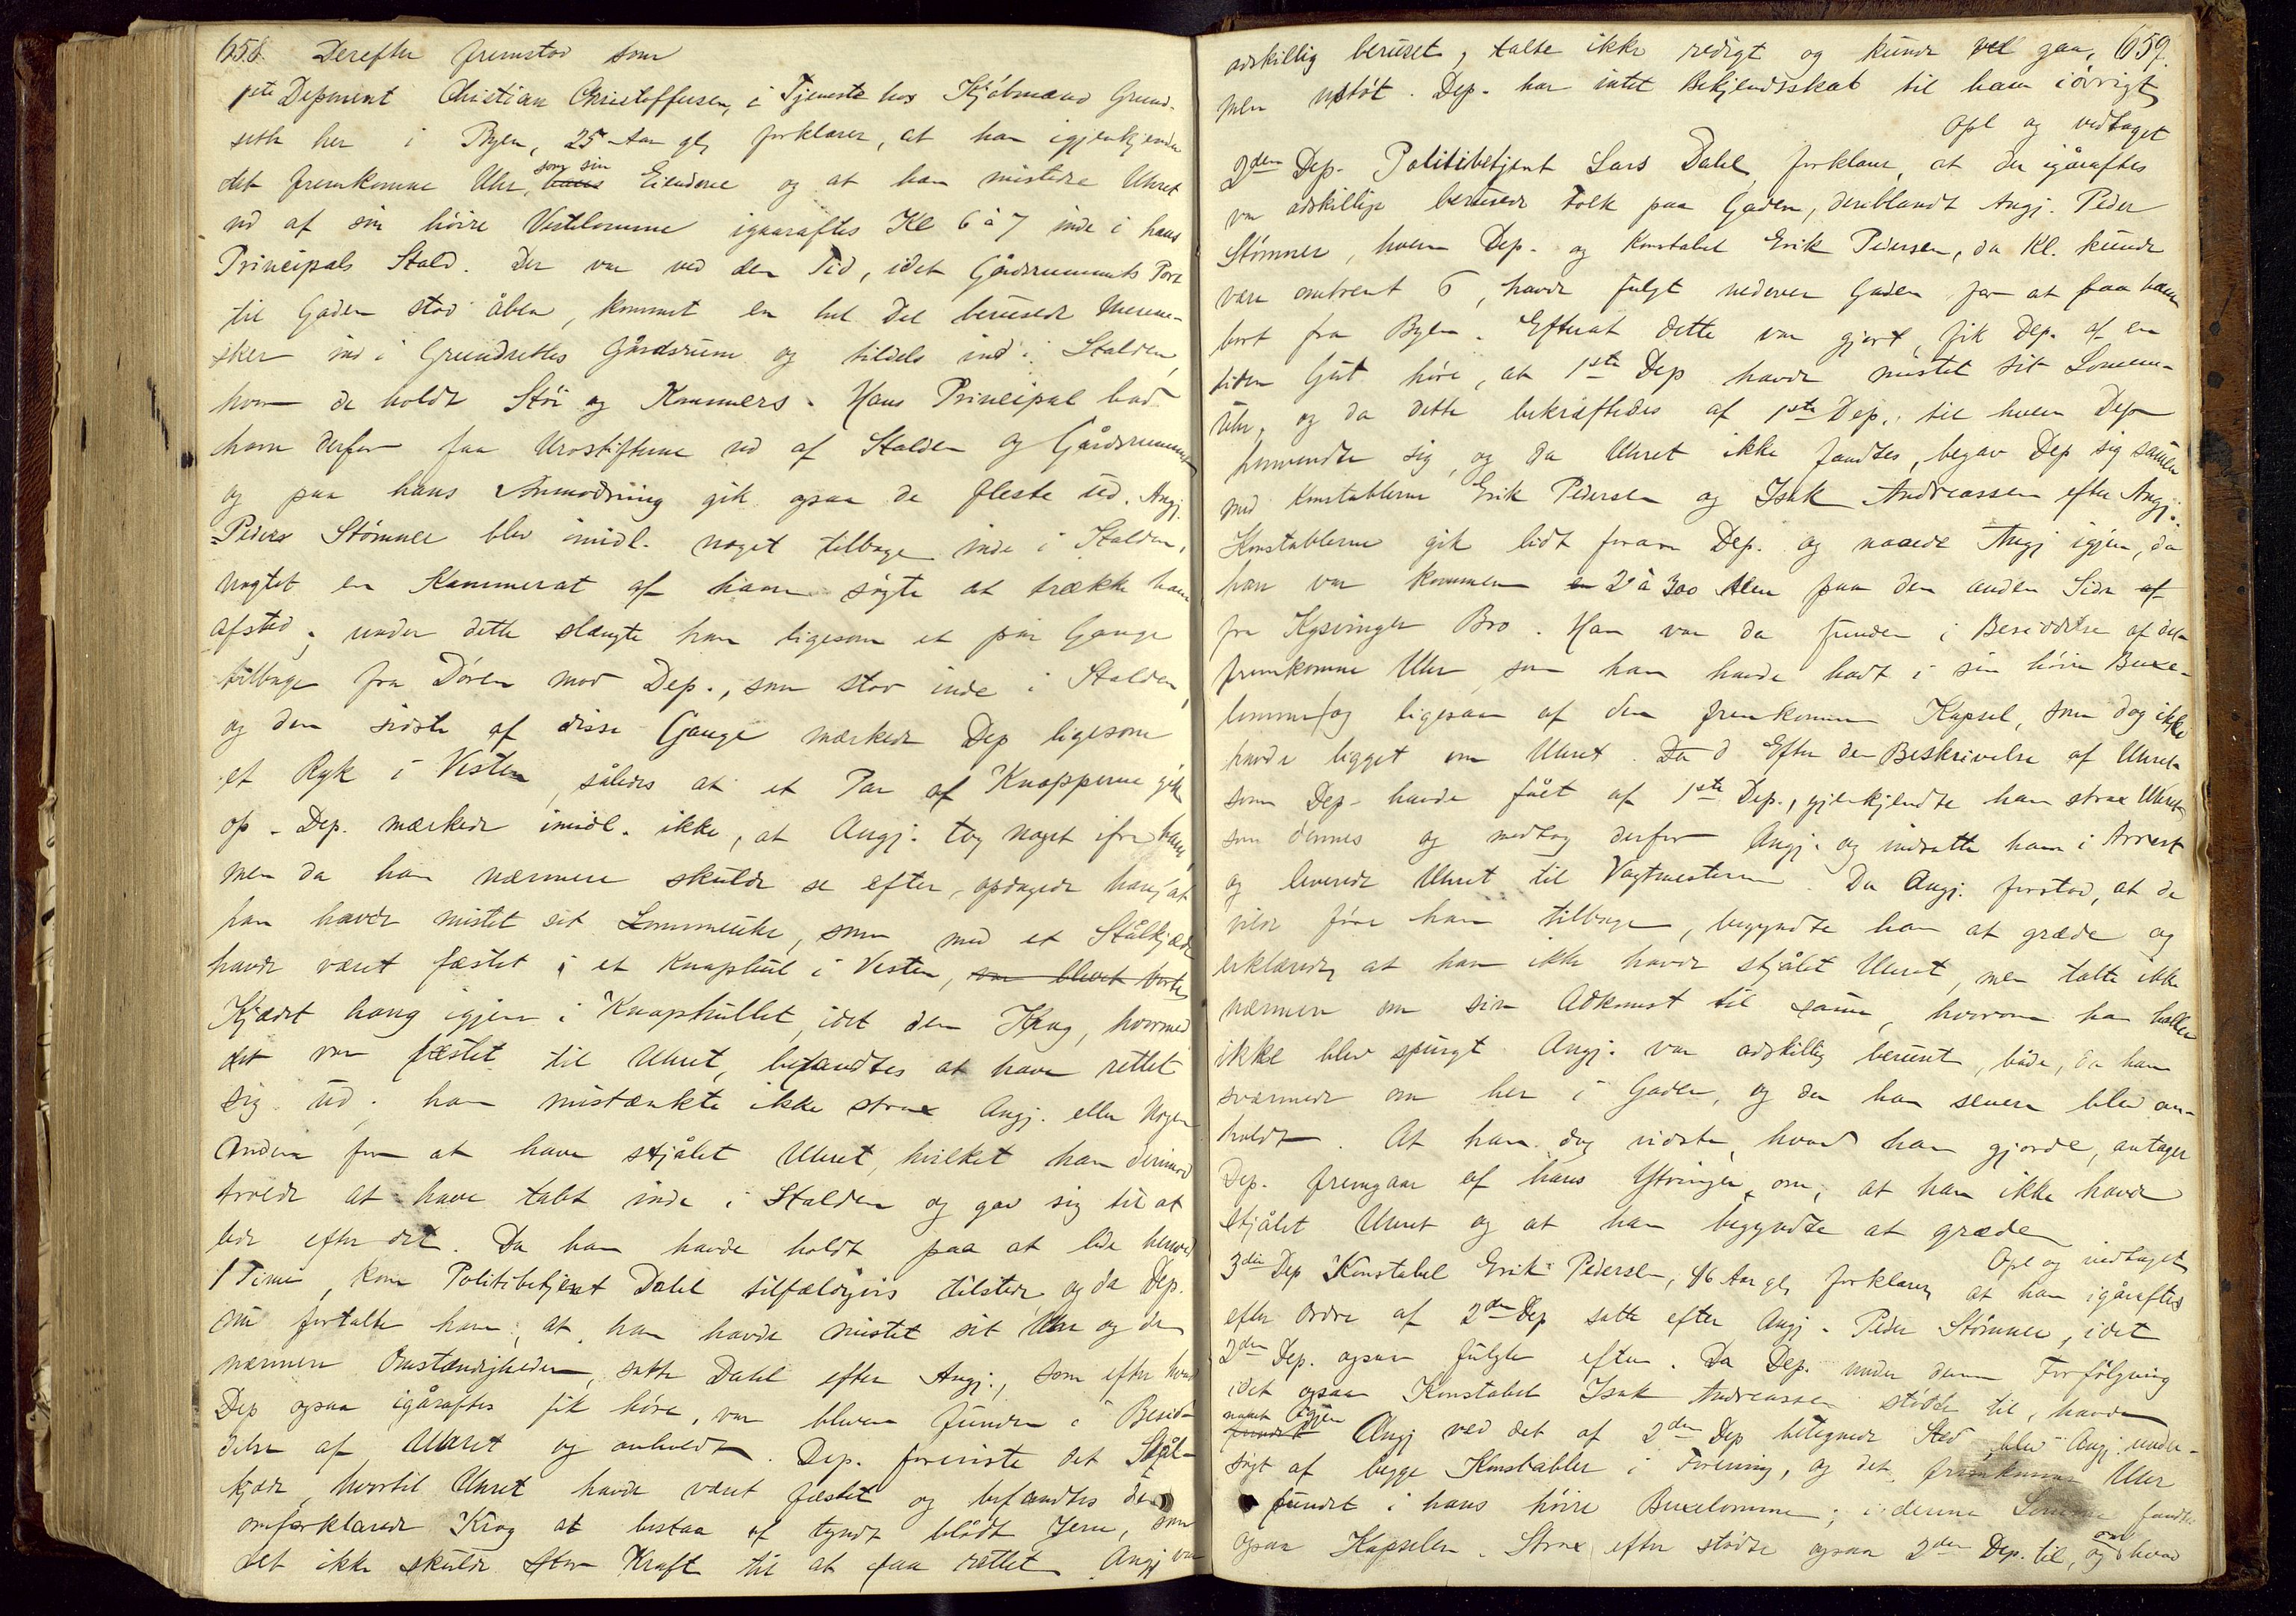 658. Derefter fremstod som
1ste Deponent Christian Christoffersen, i Tjeneste hos Kjöbmand Grund-
seth her i Byen, 25 Aar gl, forklarer, at han igjenkjender
det fremkomne Uhr, hans som sin Eiendom og at han mistede Uhret
ud af sin höire Vestelomme igaaraftes Kl 6 à 7 inde i hans
Principals Stald. Der var ved den Tid, idet Gårdsrummets Port
til Gaden stod åben, kommet en hel Del berusede Menne-
sker ind i Grundsettes Gårdsrum og tildels ind i Stalden,
hvor de holdt Stöi og Kommers. Hans Principal bad
ham derfor faa Urostifterne ud af Stalden og Gårdsrummet
og paa hans Anmodning gik ogsaa de fleste ud. Angj.
Peder Stömner blev imidl. noget tilbage inde i Stalden,
uagtet en Kammerat af ham sögte at trække ham
afsted; under dette slængte han ligesom et par Gange
tilbage fra Dören mod Dep., som stod inde i Stalden,
og den sidste af disse Gange mærkede Dep ligesom
et Ryk i Vesten, således at et Par af Knapperne gik
op. Dep. mærkede imidl. ikke, at Angj. tog noget ifra ham,
men da han nærmere skulde se efter, opdagede han, at
han havde mistet sit Lommeuhr, som med et Stålkjæde
havde været fæstet i et Knaphul i Vesten, var blevet borte
Kjædet hang igjen i Knaphullet, idet den Krog, hvormed
det var fæstet til Uhret, befandtes at have rettet
sig ud; han mistænkte ikke strax Angj. eller Nogen
Anden for at have stjålet Uhret, hvilket han derimod
troede at have tabt inde i Stalden og gav sig til at
lede efter det. Da han havde holdt paa at lede henved
1 Time, kom Politibetjent Dahl tilfældigvis tilstede og da Dep.
nu fortalte ham, at han havde mistet sit Uhr og de
nærmere Omstændigheder, satte Dahl efter Angj., som efter hvad
Dep ogsaa igåraftes fik höre, var bleven funden i Besid-
delse af Uhret og anholdt. Dep. foreviste det Stål-
kjæde, hvortil Uhret havde været fæstet og befandtes den
omforklarede Krog at bestaa af tyndt blödt Jern, som
det ikke skulde stor Kraft til at faa rettet. Angj var
adskillig beruset, talte ikke redigt og kunde vel gaa, 659.
men ustöt. Dep. har intet Bekjendtskab til ham iövrigt
Opl og vedtaget
2den Dep. Politibetjent Lars Dahl, forklarer, at der igåraftes
var adskillige berusede Folk paa Gaden, deriblandt Angj. Peder
Stömner, hvem Dep. og Konstabel Erik Pedersen, da Kl. kunde
være omtrent 6, havde fulgt nedover Gaden for at faa ham
bort fra Byen. Efterat dette var gjort, fik Dep. af en
liden Gut höre, at 1ste Dep havde mistet sit Lomme-
Uhr, og da dette bekræftedes af 1ste Dep., til hvem Dep
henvendte sig, og da Uhret ikke fandtes, begav Dep sig sammen
med Konstablerne Erik Pedersen og Isak Andreassen efter Angj.
Konstablerne gik lidt foran Dep. og naaede Angj igjen, da
han var kommen en 2 à 300 Alen paa den anden Side af
fra Kysvinger Bro. Han var da funden i Besiddelse af det
fremkomne Uhr, som han havde havt i sin höire Buxe-
lomme og ligesaa af den fremkomne Kapsel, som dog ikke
havde ligget om Uhret. Efter den Beskrivelse af Uhret
som Dep. havde fået af 1ste Dep., gjenkjendte han strax Uhret
som dennes og medtog derfor Angj. og indsatte ham i Arrest
og leverede Uhret til Vagtmesteren. Da Angj. forstod, at de
vilde före ham tilbage, begyndte han at græde og
erklærede, at han ikke havde stjålet Uhret, men talte ikke
nærmere om sin Adkomst til samme, hvorom han heller
ikke blev spurgt. Angj. var adskillig beruset, både, da han
sværmede om her i Gaden, og da han senere blev an-
holdt. At han dog vidste, hvad han gjorde, antager
Dep. fremgaar af hans Ytringer om, at han ikke havde
stjålet Uhret og at han begyndte at græde
Opl og vedtaget
3die Dep Konstabel Erik Pedersen, 46 Aar gl, forklarer, at han igåraftes
efter Ordre af 2den Dep satte efter Angj. Peder Stömner, idet
2den Dep. ogsaa fulgte efter. Da Dep. under denne Forfölgning
idet ogsaa Konstabel Isak Andreassen stödte til, havde
naaet igjen Angj ved det af 2den Dep betegnede Sted, blev Angj. under-
sögt af begge Konstabler i Forening, og det fremkomne Uhr
fundet i hans höire Buxelomme; i denne Lomme fandtes
ogsaa Kapselen. Strax efter stödte ogsaa 2den Dep. til, og om hvad